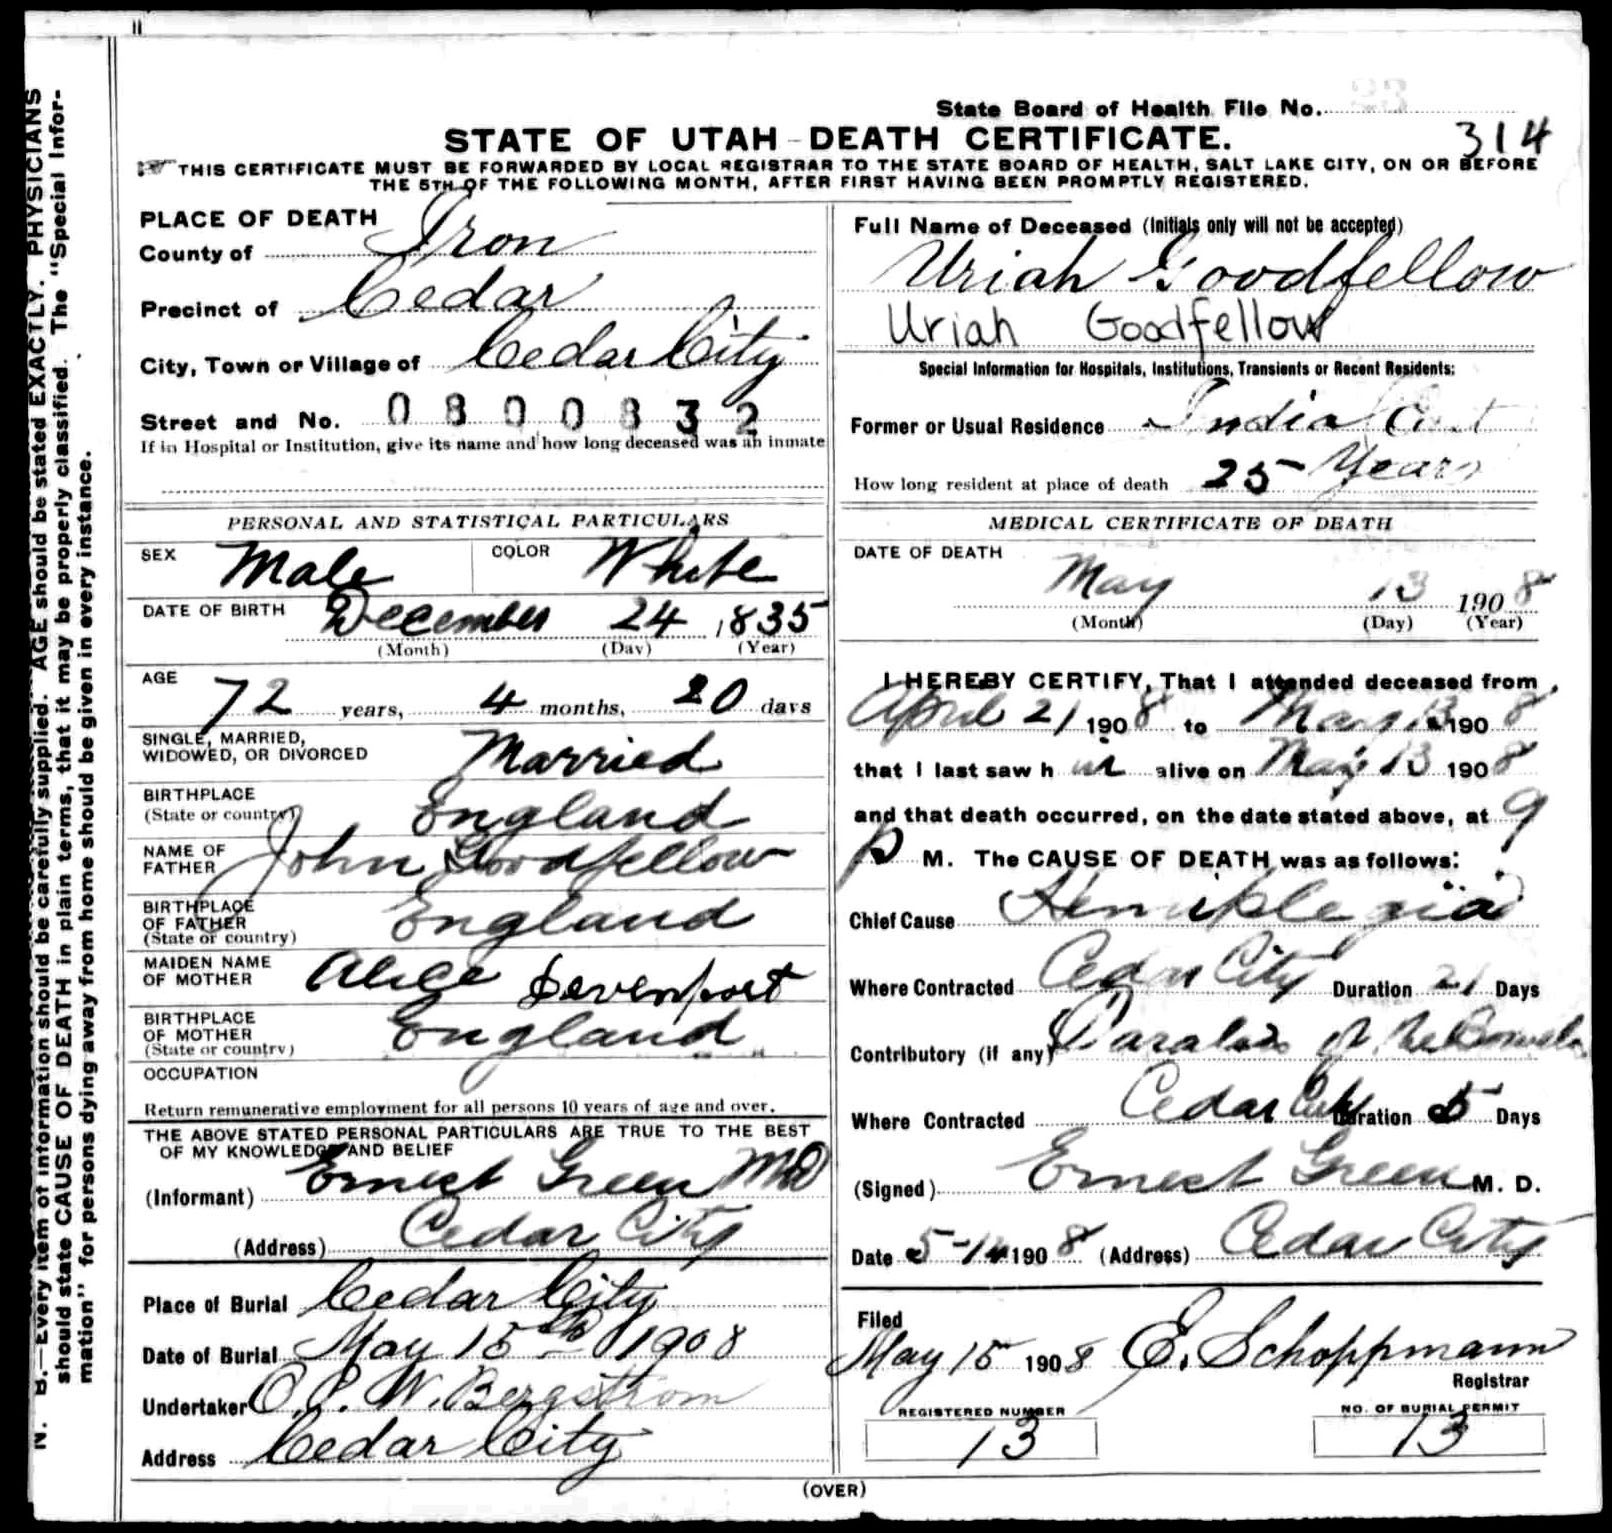 State Board of Health File No. 23
314
STATE OF UTAH - DEATH CERTIFICATE.
THIS CERTIFICATE MUST BE FORWARDED BY LOCAL REGISTRAR TO THE STATE BOARD OF HEALTH, SALT LAKE CITY, ON OR BEFORE
THE 5TH OF THE FOLLOWING MONTH, AFTER FIRST HAVING BEEN PROMPTLY REGISTERED.
PLACE OF DEATH
County of Iron
Precinct of Cedar
City, Town or Village of Cedar City
Street and No. 0800832
If in Hospital or Institution, give its name and how long deceased was an inmate
PERSONAL AND STATISTICAL PARTICULARS
SEX Male COLOR White
DATE OF BIRTH December 24 1835
(Month) (Day) (Year)
AGE 72 years, 4 months, 20 days
SINGLE, MARRIED,
WIDOWED, OR DIVORCED Married
BIRTHPLACE
(State or country) England
NAME OF
FATHER John Goodfellow
BIRTHPLACE
OF FATHER
(State or country) England
MAIDEN NAME
OF MOTHER Alice Devenport
BIRTHPLACE
OF MOTHER
(State or country) England
OCCUPATION
Return remunerative employment for all persons 10 years of age and over.
THE ABOVE STATED PERSONAL PARTICULARS ARE TRUE TO THE BEST
OF MY KNOWLEDGE AND BELIEF
(Informant) Ernest Green MD
(Address) Cedar City
Place of Burial Cedar City
Date of Burial May 15th 1908
Undertaker W. Bergstrom
Address Cedar City
Full Name of Deceased (Initials only will not be accepted)
Uriah Goodfellow
Uriah Goodfellow
Special Information for Hospitals, Institutions, Transients or Recent Residents:
Former or Usual Residence India
How long resident at place of death 25 Years
MEDICAL CERTIFICATE OF DEATH
DATE OF DEATH
May 13 1908
(Month) (Day) (Year)
I HEREBY CERTIFY, That I attended deceased from
April 21 1908 to May 13 1908
that I last saw h im alive on May 13 1908
and that death occurred, on the date stated above, at 9
P M. The CAUSE OF DEATH was as follows:
Chief Cause Hemiplegia
Where Contracted Cedar City Duration 21 Days
Contributory (if any) Paralasis of the Bowels
Where Contracted Cedar City Duration 5 Days
(Signed) Ernest Green M. D.
Date 5-14 1908 (Address) Cedar City
Filed
May 15 1908 E. Schoppmann
Registrar
REGISTERED NUMBER
13
NO. OF BURIAL PERMIT
13
(OVER)
N. B.—Every item of information should be carefully supplied. AGE should be stated EXACTLY. PHYSICIANS
should state CAUSE OF DEATH in plain terms, that it may be properly classified. The "Special Infor-
mation" for persons dying away from home should be given in every instance.